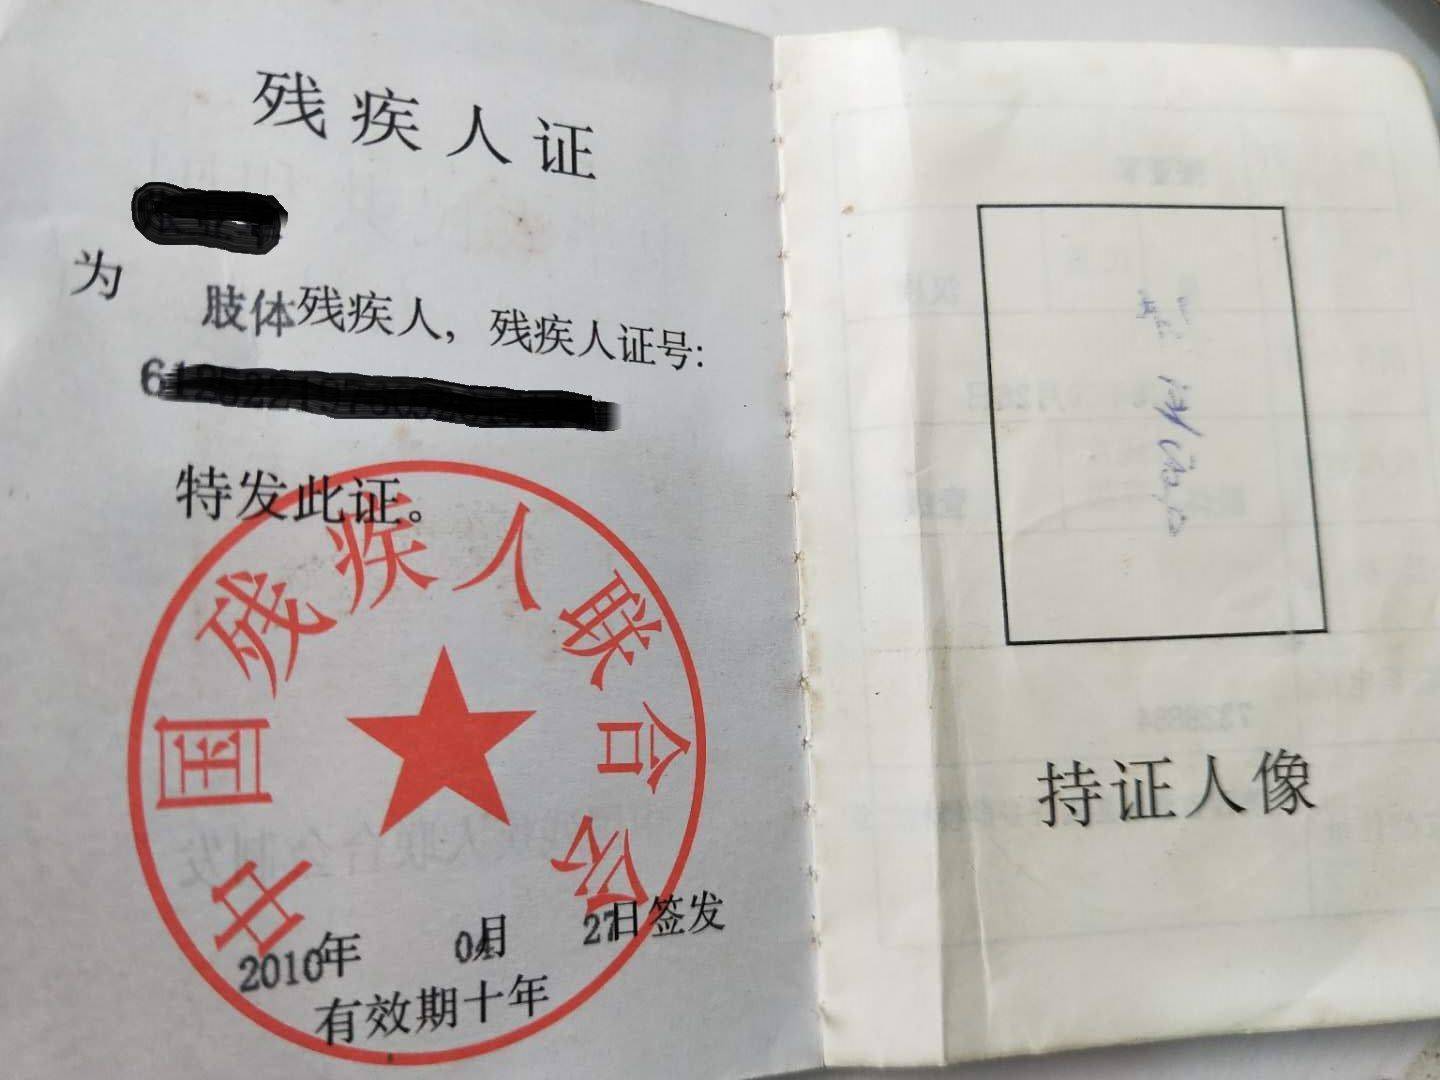 残疾人证
为
肢体残疾人，残疾人证号:
6
特发此证。
中国残疾人联合会
2010年 04月 27日签发
有效期十年
持证人像